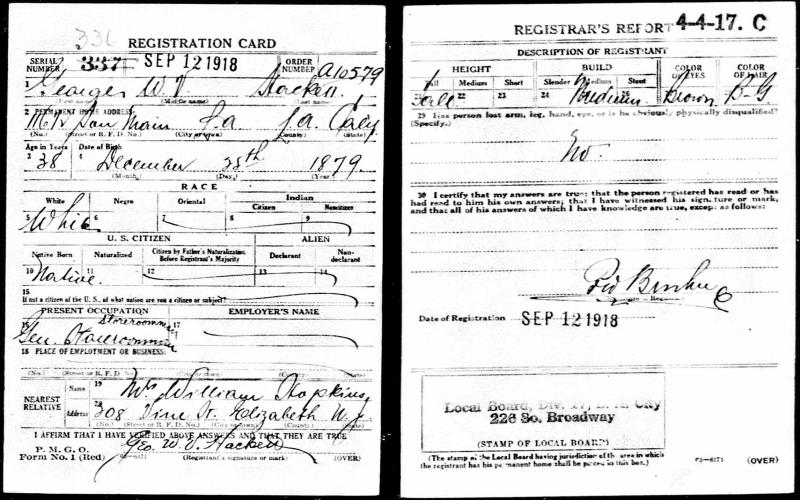 336
REGISTRATION CARD
SERIAL NUMBER 337 SEP 12 1918 ORDER NUMBER A10579
1 W. V. Hackett
(First name) (Middle name) (Last name)
2 PERMANENT HOME ADDRESS:
Main La. La. Caly
(No.) (Street or R. F. D. No.) (City or town) (County) (State)
Age in Years Date of Birth
3 38 4 December 25th 1879.
(Month.) (Day.) (Year.)
RACE
White Negro Oriental Indian
Citizen Noncitizen
5 White 6 7 8 9
U. S. CITIZEN ALIEN
Native Born Naturalized Citizen by Father's Naturalization Before Registrant's Majority Declarant Non-declarant
10 Native. 11 12 13 14
15
If not a citizen of the U. S., of what nation are you a citizen or subject?
PRESENT OCCUPATION EMPLOYER'S NAME
Storeroomman 17
Gen. Storeroomman
18 PLACE OF EMPLOYMENT OR BUSINESS:
(No.) (Street or R. F. D. No.) (City or town) (County) (State)
NEAREST RELATIVE Name 19 Mrs William Hopkins,
Address 20 308 Vine St. Elizabeth N. J.
(No.) (Street or R. F. D. No.) (City or town) (County) (State)
I AFFIRM THAT I HAVE VERIFIED ABOVE ANSWERS AND THAT THEY ARE TRUE
P. M. G. O.
Form No. 1 (Red) 03-6171 Geo. W. V. Hackett
(Registrant's signature or mark) (OVER)
REGISTRAR'S REPORT 4-4-17. C
DESCRIPTION OF REGISTRANT
HEIGHT BUILD COLOR OF EYES COLOR OF HAIR
Tall Medium Short Slender Medium Stout
Tall 22 23 24 Medium 26 Brown B-G
29 Has person lost arm, leg, hand, eye, or is he obviously physically disqualified?
(Specify.)
No.
30 I certify that my answers are true; that the person registered has read or has
had read to him his own answers; that I have witnessed his signature or mark,
and that all of his answers of which I have knowledge are true, except as follows:
Date of Registration SEP 12 1918
Local Board, Div. 17, L. A. City
226 So. Broadway
(STAMP OF LOCAL BOARD)
(The stamp of the Local Board having jurisdiction of the area in which
the registrant has his permanent home shall be placed in this box.)
03-6171 (OVER)